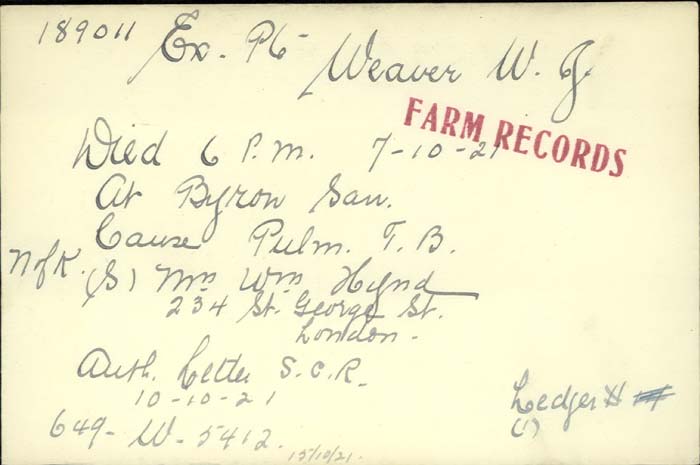 189011 Ex. Pte Weaver W. J.
FARM RECORDS
Died 6 P.M. 7-10-21
At Byron San.
Cause Pulm. T. B.
N of K. (S) Mrs Wm Hynd
234 St. George St.
London.
Auth. Letter S.C.R.
10-10-21
649-W-5412.
15/10/21.
Ledger
(1)